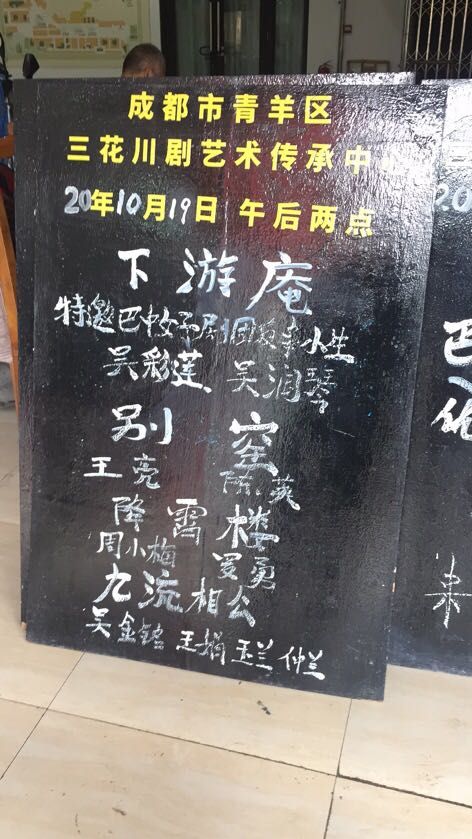 成都市青羊区
三花川剧艺术传承中心
20年10月19日 午后两点
下游庵
特邀巴中女子剧团 小生
吴彩莲 吴润琴
别窑
王亮 陈英
降霄楼
周小梅 罗勇
九流相公
吴金铭 王娟 玉兰 仲兰
20
巴
优
来